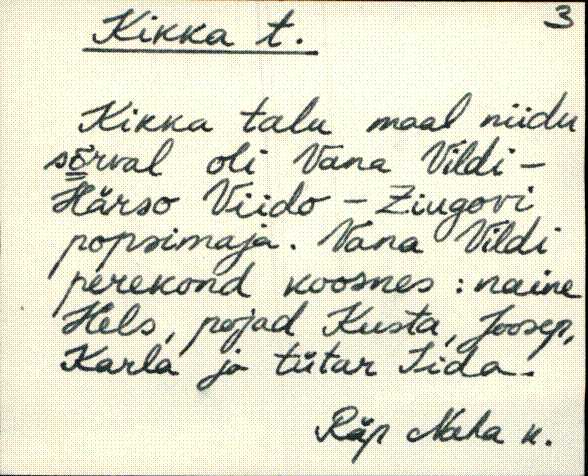 3
Kikka t.
Kikka talu maal niidu
sõrval oli Vana Vildi -
Härso Viido - Ziugovi
popsimaja. Vana Vildi
perekond koosnes : naine
Hels, pojad Kusta, Joosep,
Karla ja tütar Iida.
Räp Naha k.